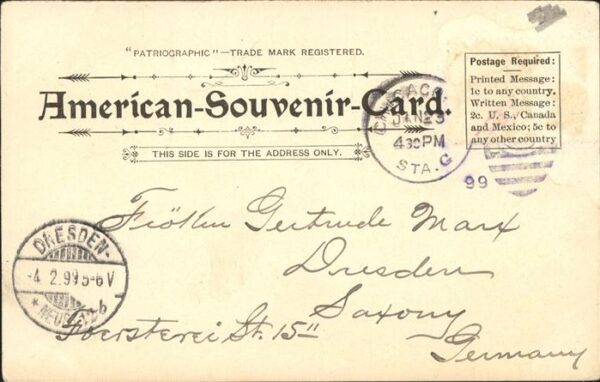 "PATRIOGRAPHIC"—TRADE MARK REGISTERED.
American-Souvenir-Card.
THIS SIDE IS FOR THE ADDRESS ONLY.
Postage Required:
Printed Message:
1c to any country.
Written Message:
2c. U. S., Canada
and Mexico; 5c to
any other country
CHICAGO
JAN 23
430 PM
STA. G
99
DRESDEN-
4 2.99 5-6 V
Gertrude Marx
Dresden
Saxony
Foersterei St. 15"
Germany